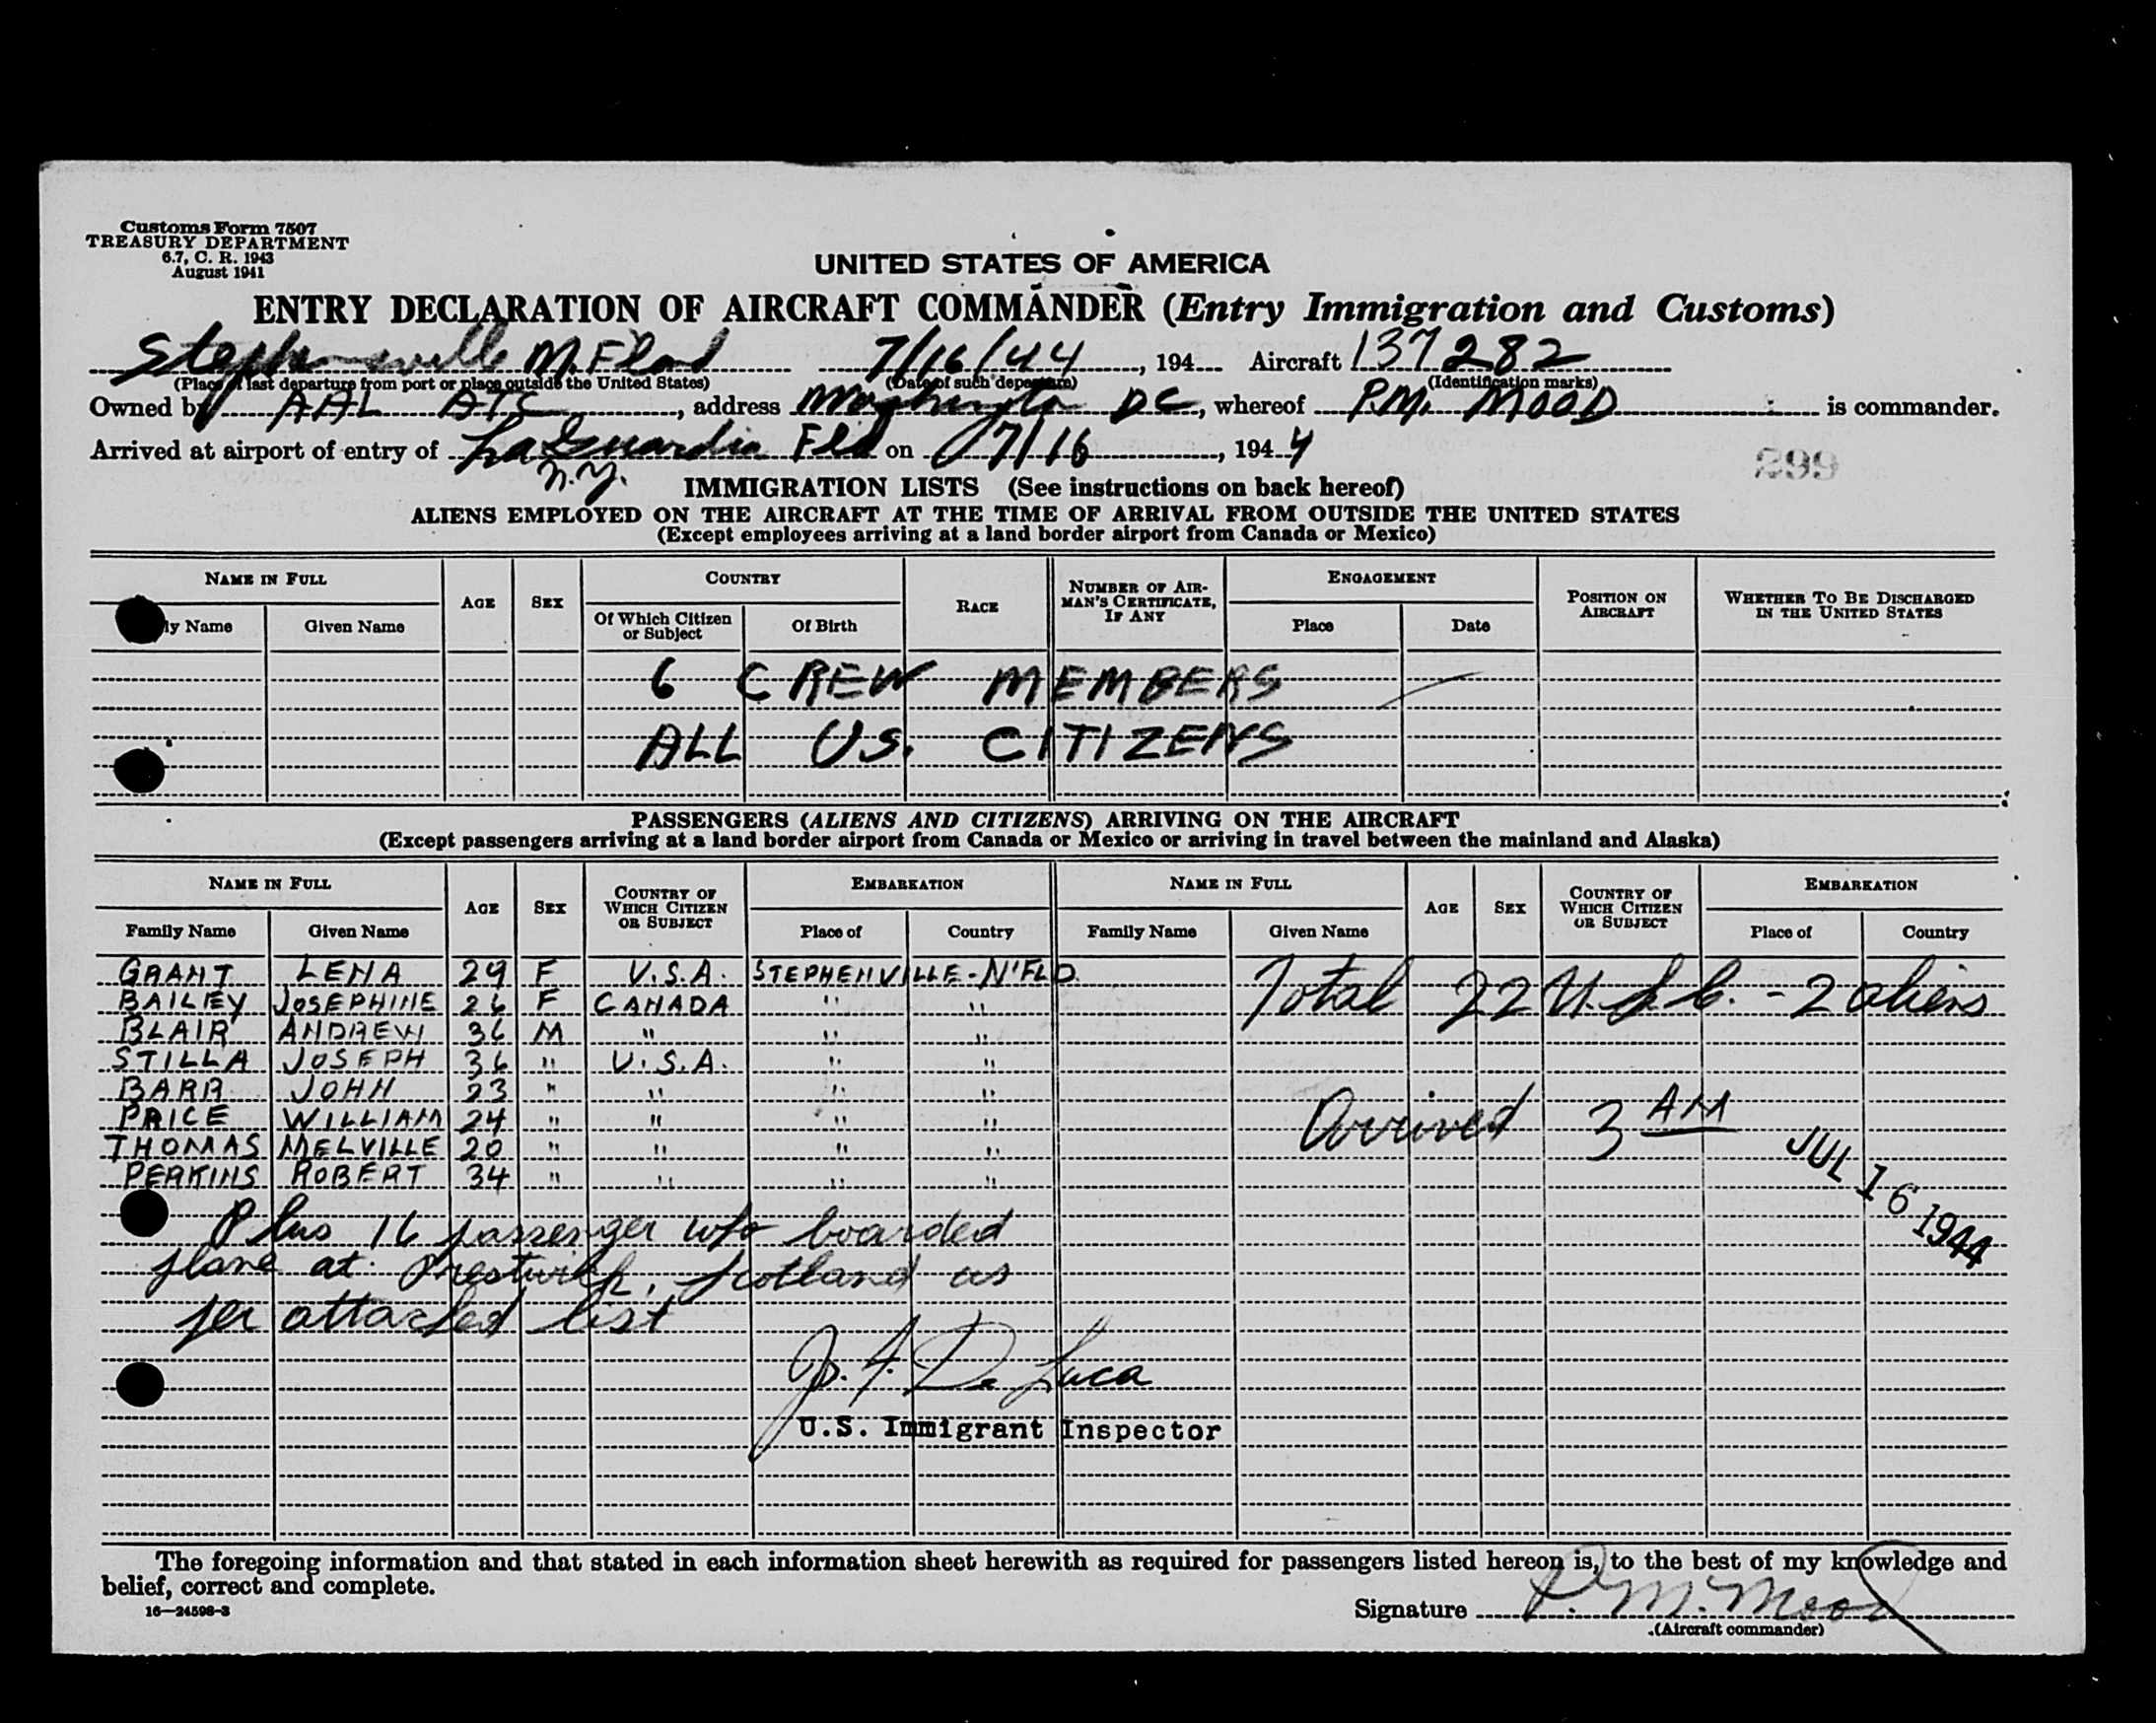 Customs Form 7507
TREASURY DEPARTMENT
6.7, C. R. 1943
August 1941
UNITED STATES OF AMERICA
ENTRY DECLARATION OF AIRCRAFT COMMANDER (Entry Immigration and Customs)
Stephenville N.Fld 7/16/44, 194 Aircraft 137282
(Place of last departure from port or place outside the United States) (Date of such departure) (Identification marks)
Owned by AAL ATC, address Washington DC, whereof P.M. MOOD is commander.
Arrived at airport of entry of LaGuardia Fld on 7/16, 1944
N.Y.
299
IMMIGRATION LISTS (See instructions on back hereof)
ALIENS EMPLOYED ON THE AIRCRAFT AT THE TIME OF ARRIVAL FROM OUTSIDE THE UNITED STATES
(Except employees arriving at a land border airport from Canada or Mexico)
NAME IN FULL AGE SEX COUNTRY RACE NUMBER OF AIRMAN'S CERTIFICATE, IF ANY ENGAGEMENT POSITION ON AIRCRAFT WHETHER TO BE DISCHARGED IN THE UNITED STATES
ly Name Given Name Of Which Citizen or Subject Of Birth Place Date
6 CREW MEMBERS
ALL US. CITIZENS
PASSENGERS (ALIENS AND CITIZENS) ARRIVING ON THE AIRCRAFT
(Except passengers arriving at a land border airport from Canada or Mexico or arriving in travel between the mainland and Alaska)
NAME IN FULL AGE SEX COUNTRY OF WHICH CITIZEN OR SUBJECT EMBARKATION NAME IN FULL AGE SEX COUNTRY OF WHICH CITIZEN OR SUBJECT EMBARKATION
Family Name Given Name Place of Country Family Name Given Name Place of Country
GRANT LENA 29 F U.S.A. STEPHENVILLE-N'FLD.
BAILEY JOSEPHINE 26 F CANADA " "
Total 22 U.S.C. - 2 aliens
BLAIR ANDREW 36 M " " "
STILLA JOSEPH 36 " U.S.A. " "
BARR JOHN 23 " " " "
PRICE WILLIAM 24 " " " "
Arrived 3 AM
THOMAS MELVILLE 20 " " " "
PERKINS ROBERT 34 " " " "
JUL 16 1944
Plus 16 passenger who boarded
plane at Prestwick, Scotland as
per attached list
J. F. De Luca
U.S. Immigrant Inspector
The foregoing information and that stated in each information sheet herewith as required for passengers listed hereon is, to the best of my knowledge and
belief, correct and complete.
16—24598-3
Signature P. M. Mood
(Aircraft commander)